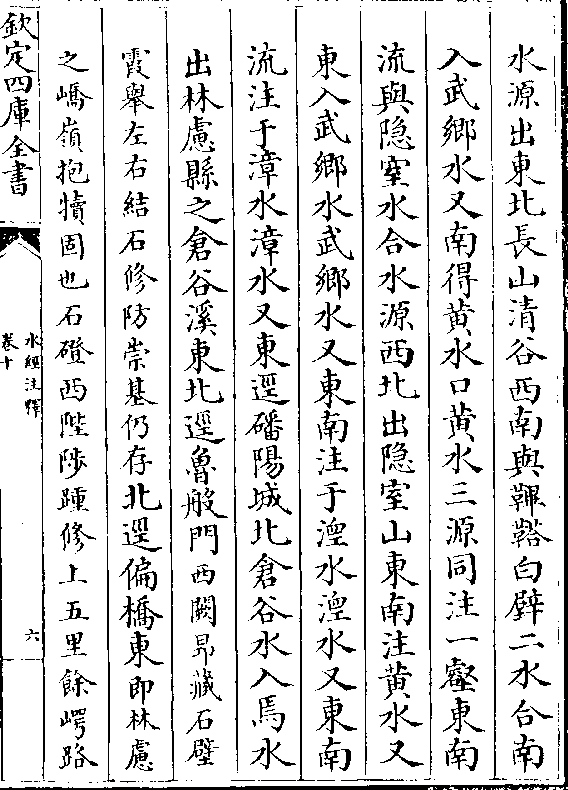 水源出東北長山清谷西南與鞸鞳白壁二水合南
入武鄉水又南得黄水口黄水三源同注一壑東南
流與隐室水合水源西北出隐室山東南注黄水又
東入武鄉水武鄉水又東南注于湼水湼水又東南
流注于漳水漳水又東逕磻陽城北倉谷水入焉水
出林慮縣之倉谷溪東北逕魯般門西闕昻藏石壁
霞舉左右結石修防崇基仍存北逕偏橋東即林慮
之嶠嶺抱犢固也石磴西陛陟踵修上五里餘崿路
欽定四庫全書
水經注釋
卷十
六